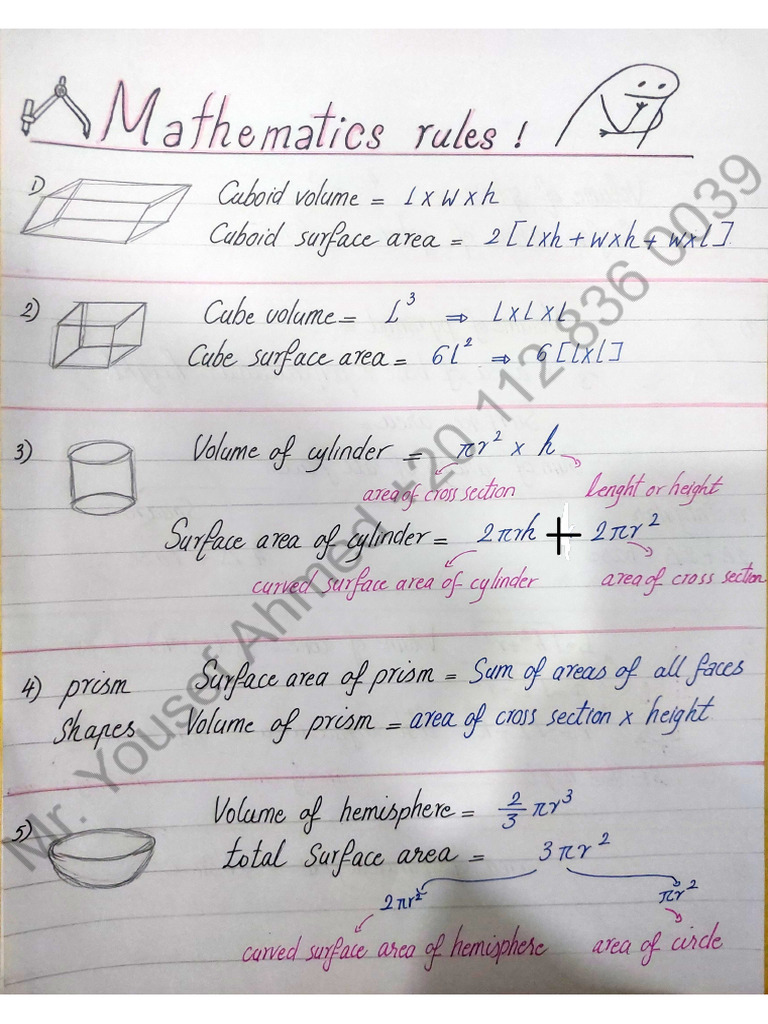 Mathematics rules!
1) Cuboid volume = l x w x h
Cuboid surface area = 2 [ l x h + w x h + w x l ]
2) Cube volume = l³ ⇒ l x l x l
Cube surface area = 6l² ⇒ 6 [l x l]
3) Volume of cylinder = πr² x h
area of cross section lenght or height
Surface area of cylinder = 2πrh + 2πr²
curved surface area of cylinder area of cross section
4) prism Surface area of prism = Sum of areas of all faces
shapes Volume of prism = area of cross section x height
5) Volume of hemisphere = 2/3 πr³
total surface area = 3πr²
2πr² πr²
curved surface area of hemisphere area of circle
Mr. Yousef Ahmed +20 112 836 0039